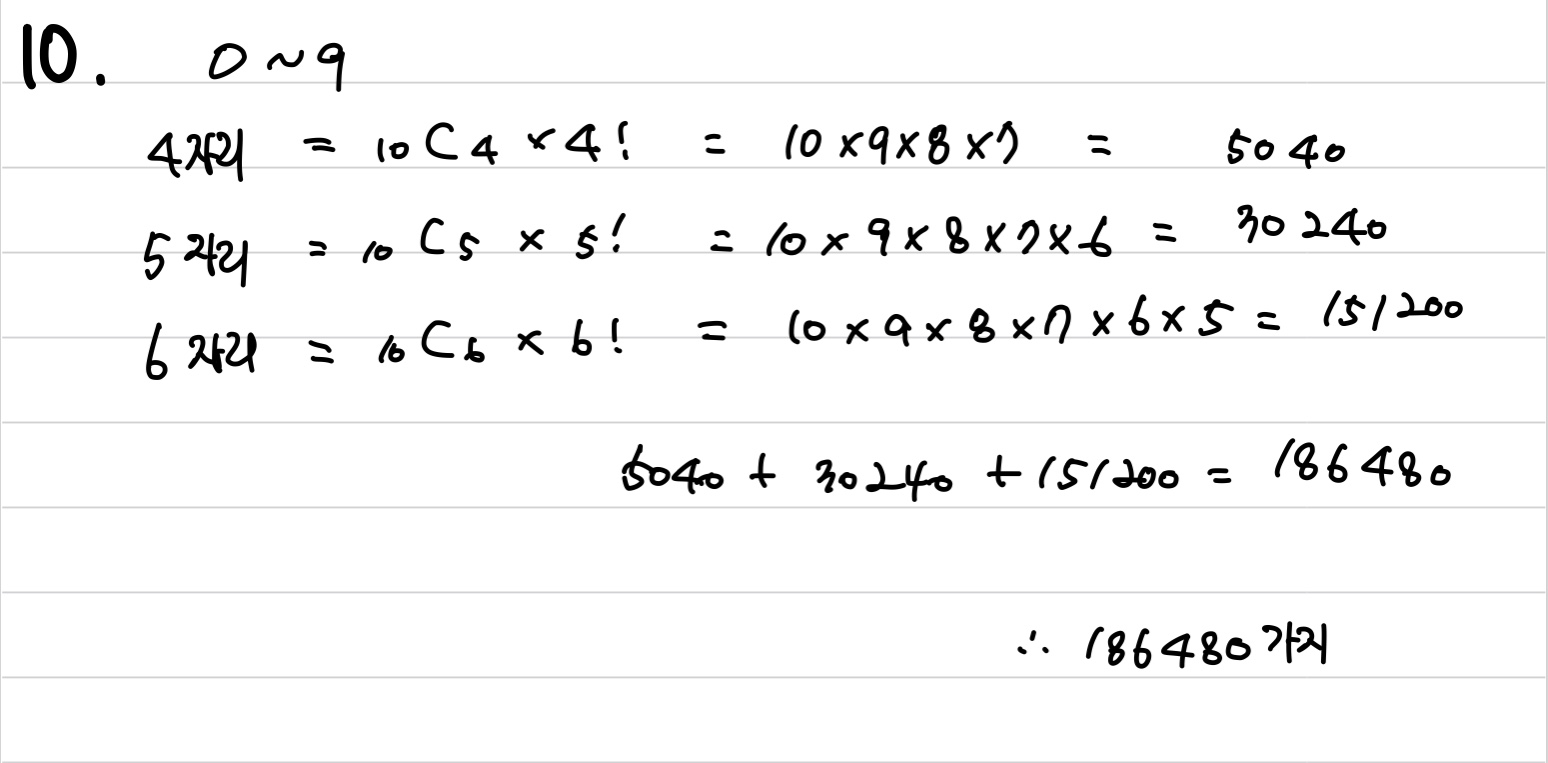 10. 0~9
4자리 = ₁₀C₄ × 4! = 10×9×8×7 = 5040
5자리 = ₁₀C₅ × 5! = 10×9×8×7×6 = 30240
6자리 = ₁₀C₆ × 6! = 10×9×8×7×6×5 = 151200
5040 + 30240 + 151200 = 186480
∴ 186480가지